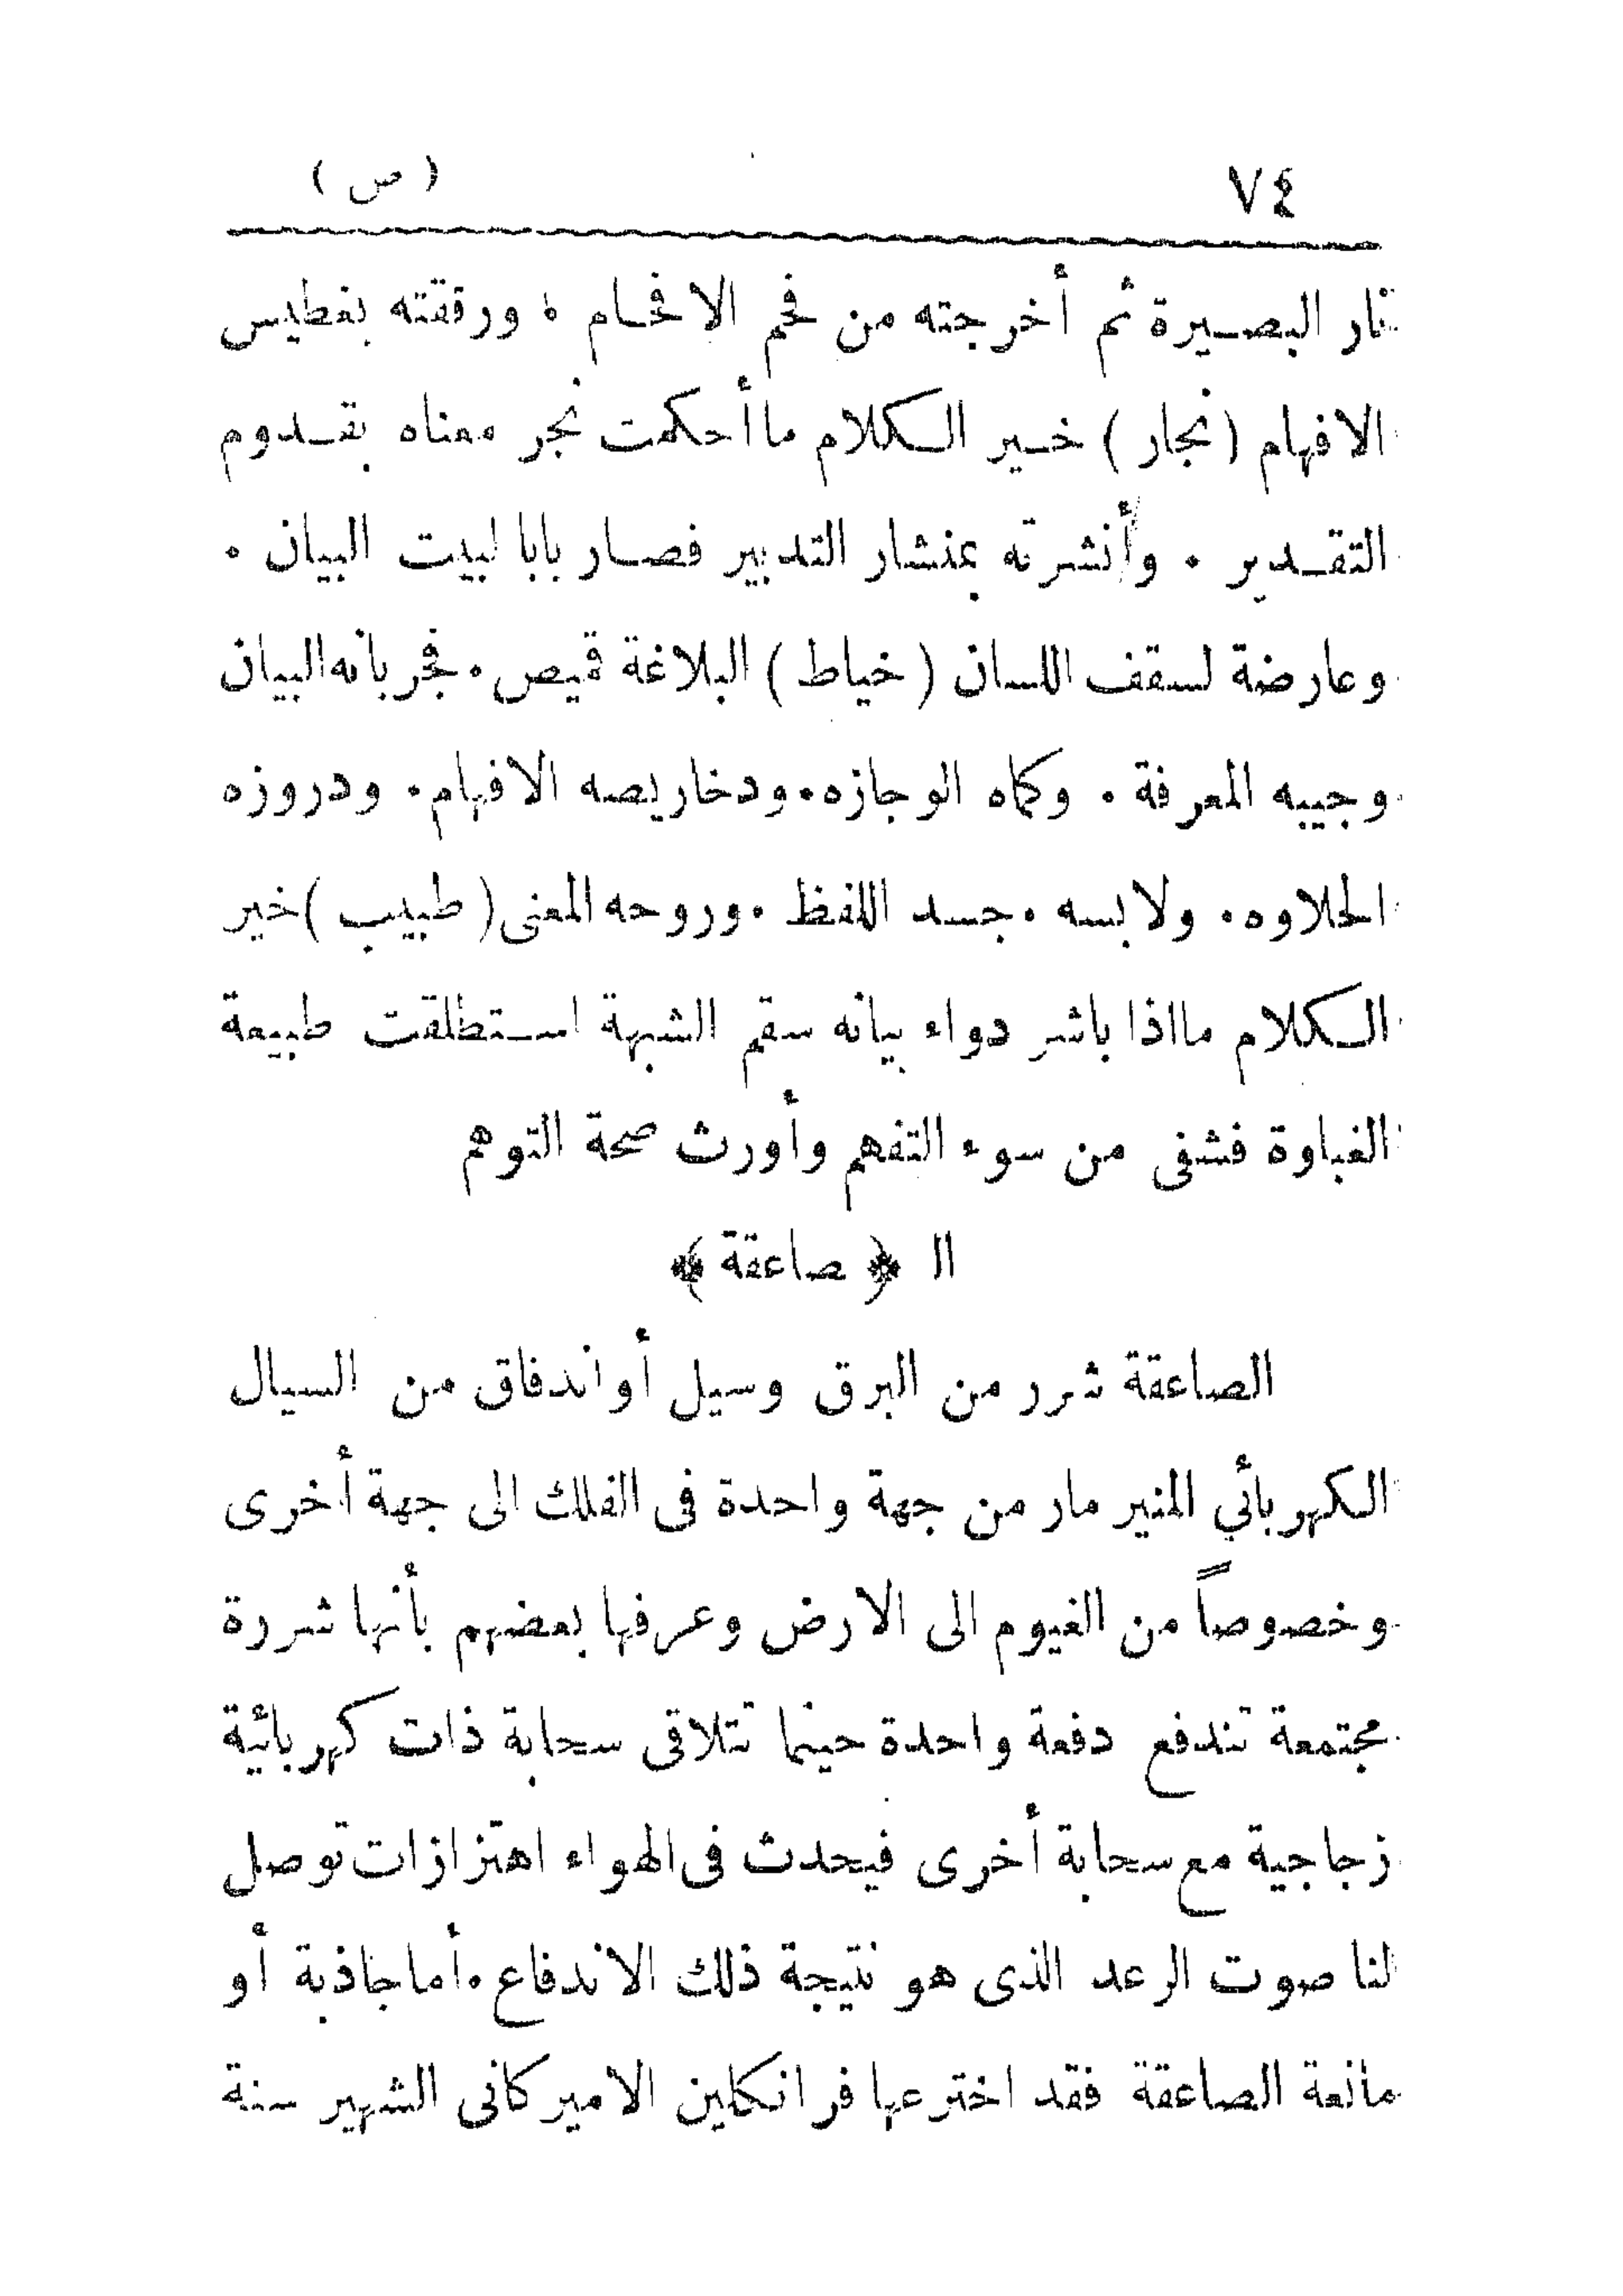 ٧٤ ( ص )
نار البصيرة ثم أخرجته من فحم الافحام ، ورققته بفطيس
الافهام ( نجار ) خير الكلام ما أحكمت نجر معناه بقدوم
التقدير . وأنشرته بمنشار التدبير فصار بابا لبيت البيان .
وعارضة لسقف اللسان ( خياط ) البلاغة قميص . فجربانه البيان
وجيبه المعرفة . وكماه الوجازه . ودخاريصه الافهام . ودروزه
الحلاوه . ولابسه . جسد اللفظ . وروحه المعنى ( طبيب ) خير
الكلام ما اذا باشر دواء بيانه سقم الشبهة استطلقت طبيعة
الغباوة فشفى من سوء التفهم وأورث صحة التوهم
ال ﴿ صاعقة ﴾
الصاعقة شرر من البرق وسيل أو اندفاق من السيال
الكهربأئي المنير مار من جهة واحدة فى الفلك الى جهة أخرى
وخصوصاً من الغيوم الى الارض وعرفها بعضهم بأنها شررة
مجتمعة تندفع دفعة واحدة حينما تتلاقى سحابة ذات كهربائية
زجاجية مع سحابة أخرى فيحدث فى الهواء اهتزازات توصل
لنا صوت الرعد الذى هو نتيجة ذلك الاندفاع . أما جاذبة أو
مانعة الصاعقة فقد اخترعها فرانكلين الاميركانى الشهير سنة